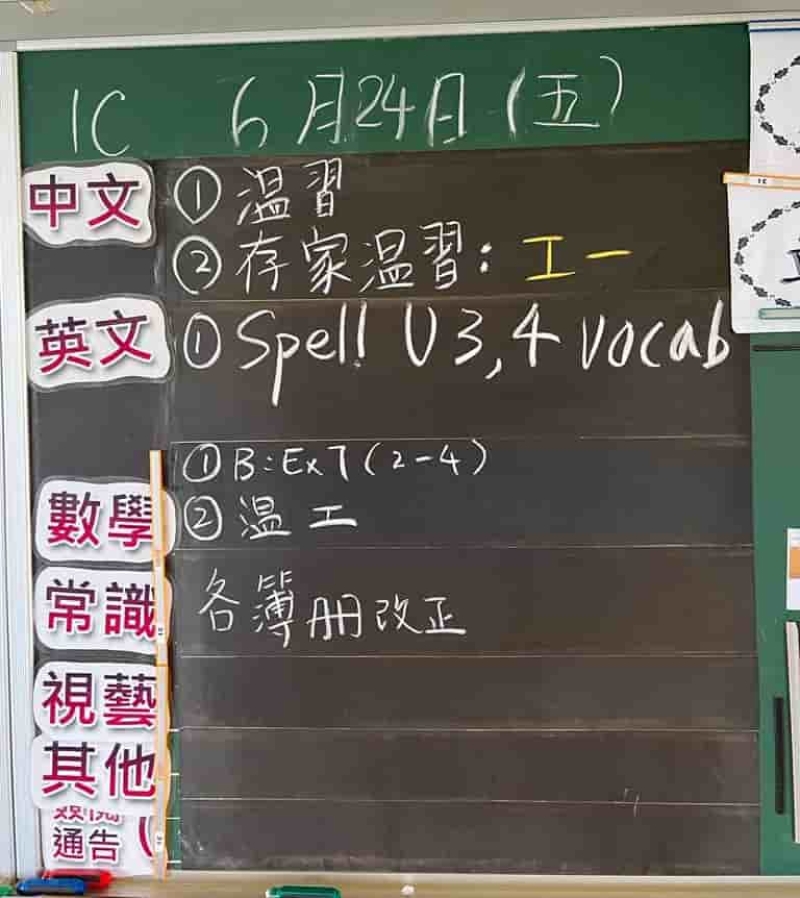 1C 6月24日(五)
中文 ① 温習
② 存家温習:工一
英文 ① Spell U3,4 vocab
① B:Ex7(2-4)
數學 ② 温工
常識 各簿冊改正
視藝
其他
通告